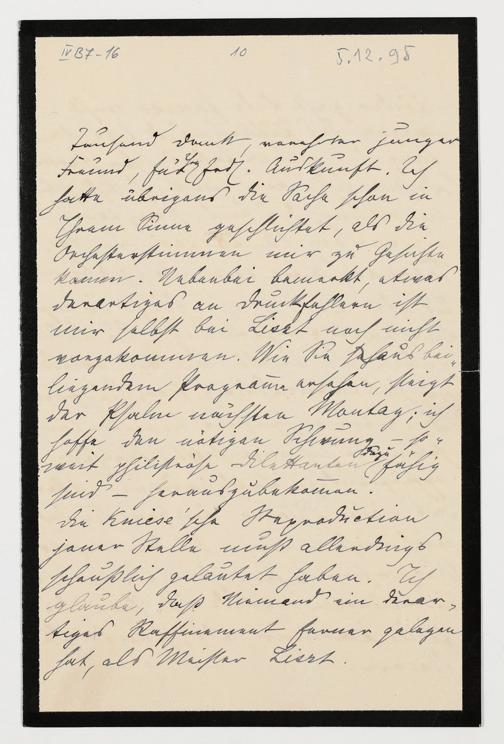 IV B7-16 10 5.12.95
Tausend Dank, verehrter junger
Freund, für frdl. Auskunft. Ich
hatte übrigens die Sache schon in
Ihrem Sinne geschlichtet, als die
Orchesterstimmen mir zu Gesichte
kamen. Nebenbei bemerkt, etwas
derartiges an Druckfehlern ist
mir selbst bei Liszt noch nicht
vorgekommen. Wie Sie bei-
liegendem Programm ersehen, steigt
der Psalm nächsten Montag; ich
hoffe den nötigen Schwung – so-
weit philiströse Dilettanten dazu fähig
sind – herauszubekommen.
Die Kniese'sche Reproduction
jener Stelle muß allerdings
scheußlich gelautet haben. Ich
glaube, daß Niemand ein derar-
tiges Raffinement ferner gelegen
hat, als Meister Liszt.